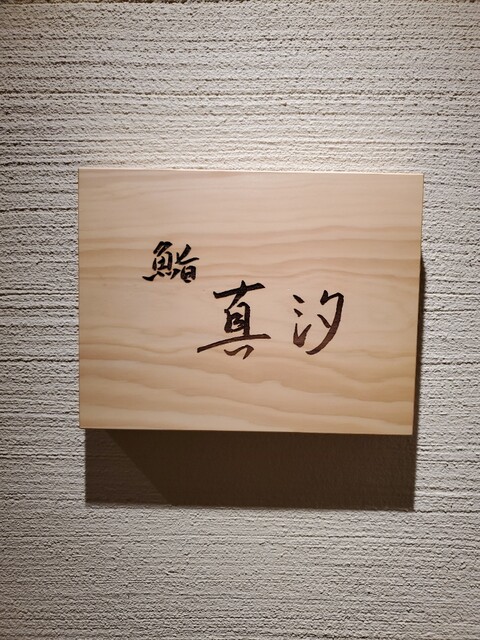 鮨
真汐